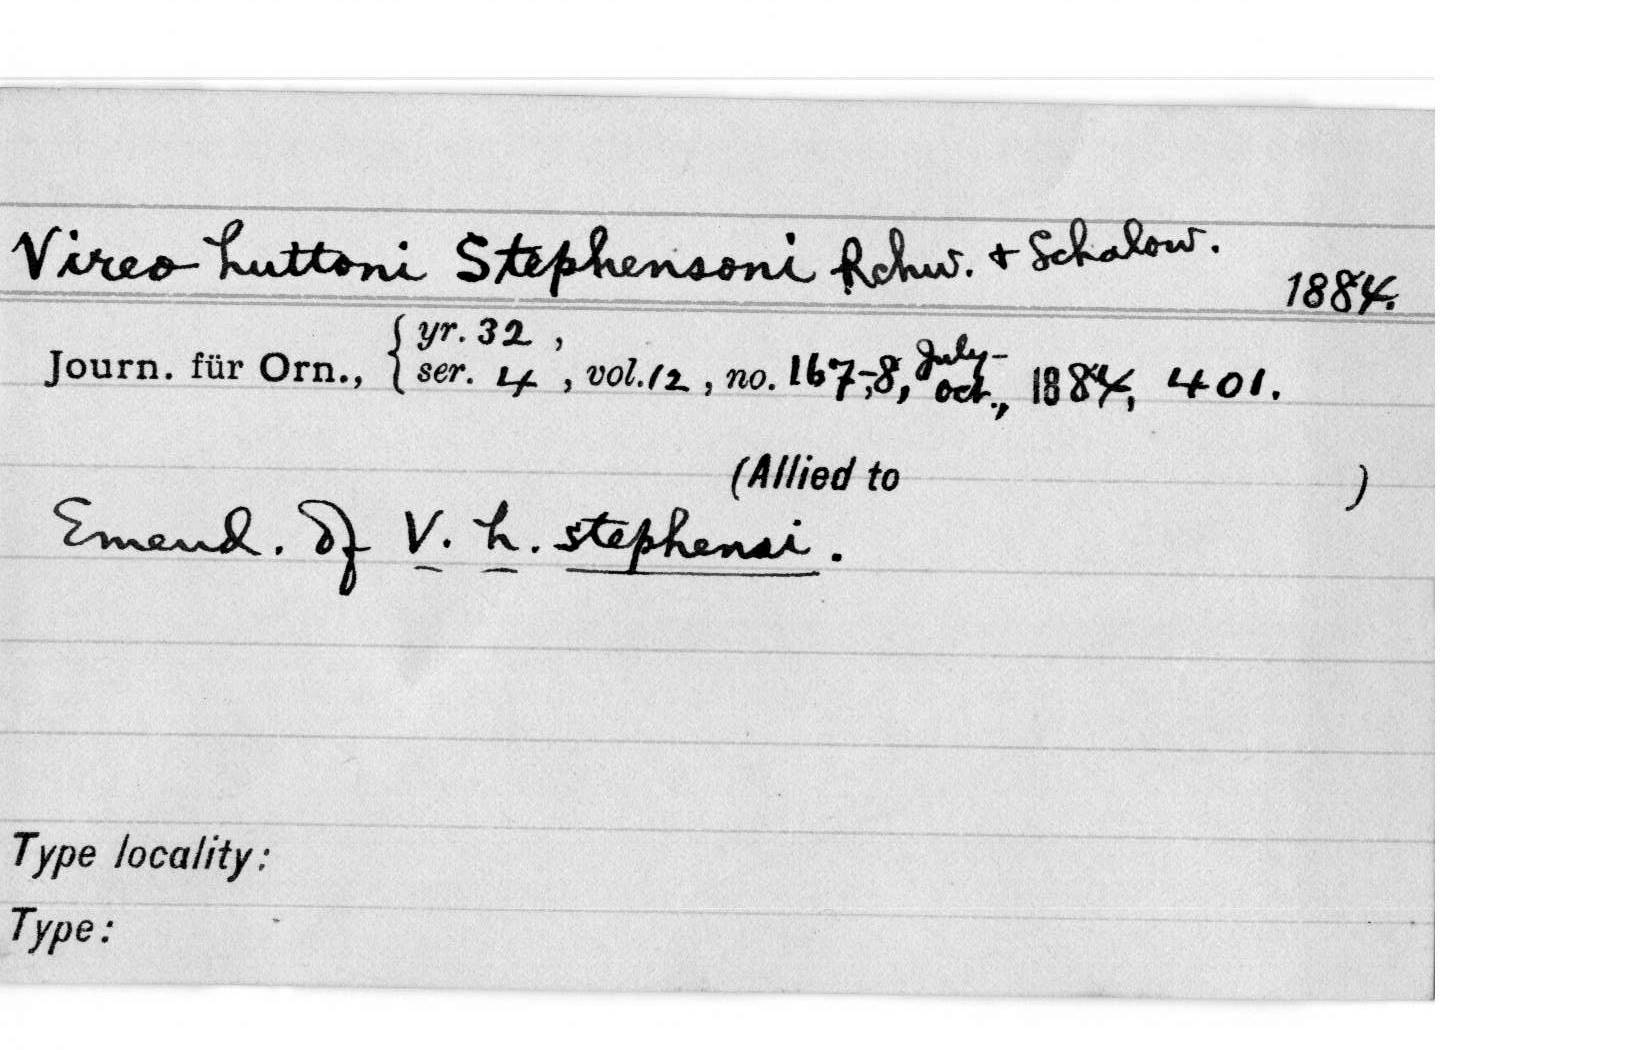 Vireo huttoni Stephensoni Rchw. + Schalow.
1884.
Journ. für Orn., { yr. 32 , ser. 4 , vol. 12 , no. 167-8, July-Oct., 1884, 401.
(Allied to )
Emend. of V. h. stephensi.
Type locality:
Type: